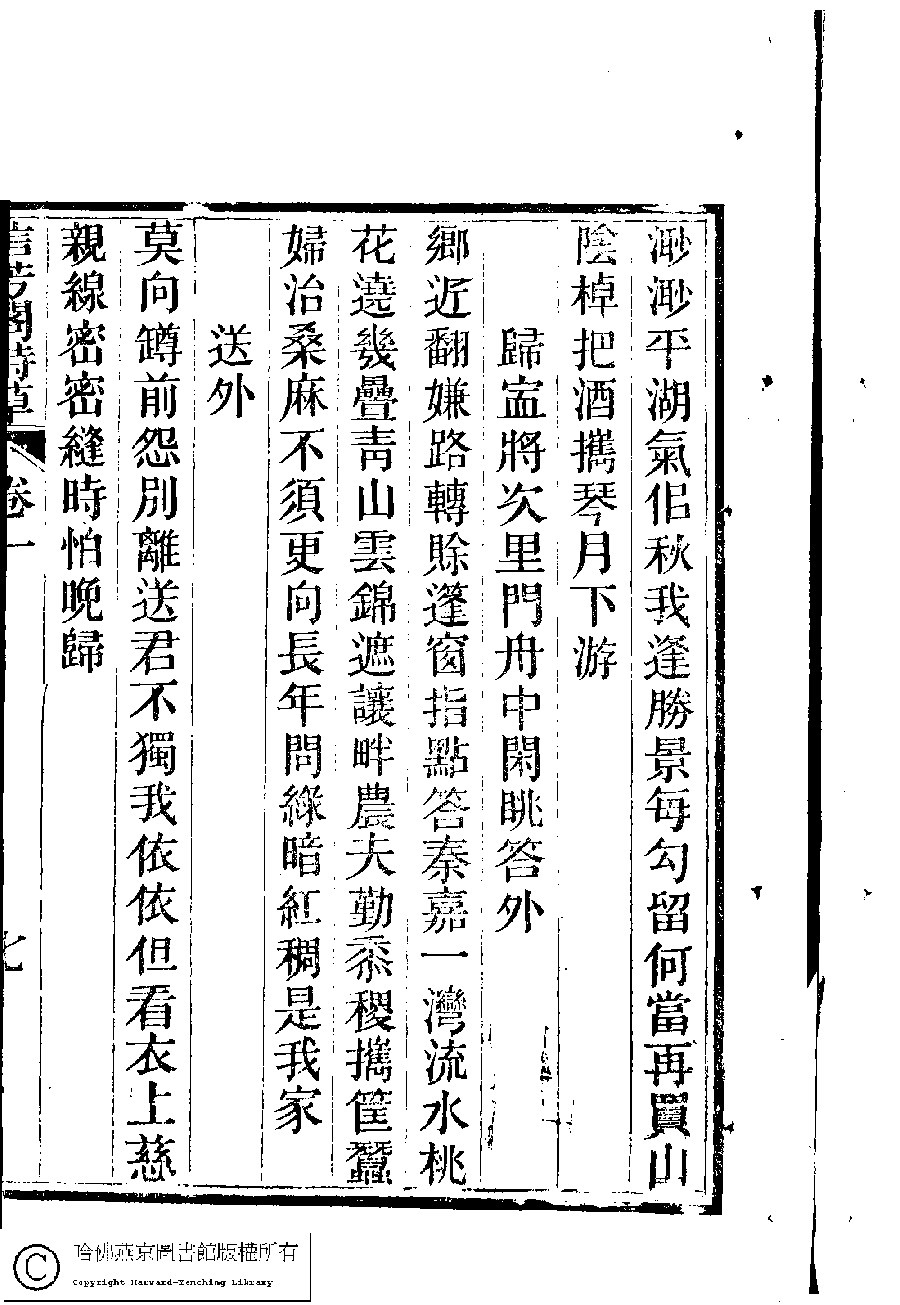 渺渺平湖氣佀秋我逢勝景每勾留何當再買山
陰棹把酒攜琴月下游
歸寍將次里門舟中閑眺答外
鄉近翻嫌路轉賒蓬窗指點答秦嘉一灣流水桃
花遶幾疊青山雲錦遮讓畔農夫勤黍稷攜筐蠶
婦治桑麻不須更向長年問綠暗紅稠是我家
送外
莫向罇前怨別離送君不獨我依依但看衣上慈
親線密密縫時怕晚歸
信芳閣詩草 卷一 七
哈佛燕京圖書館版權所有
Copyright Harvard-Yenching Library